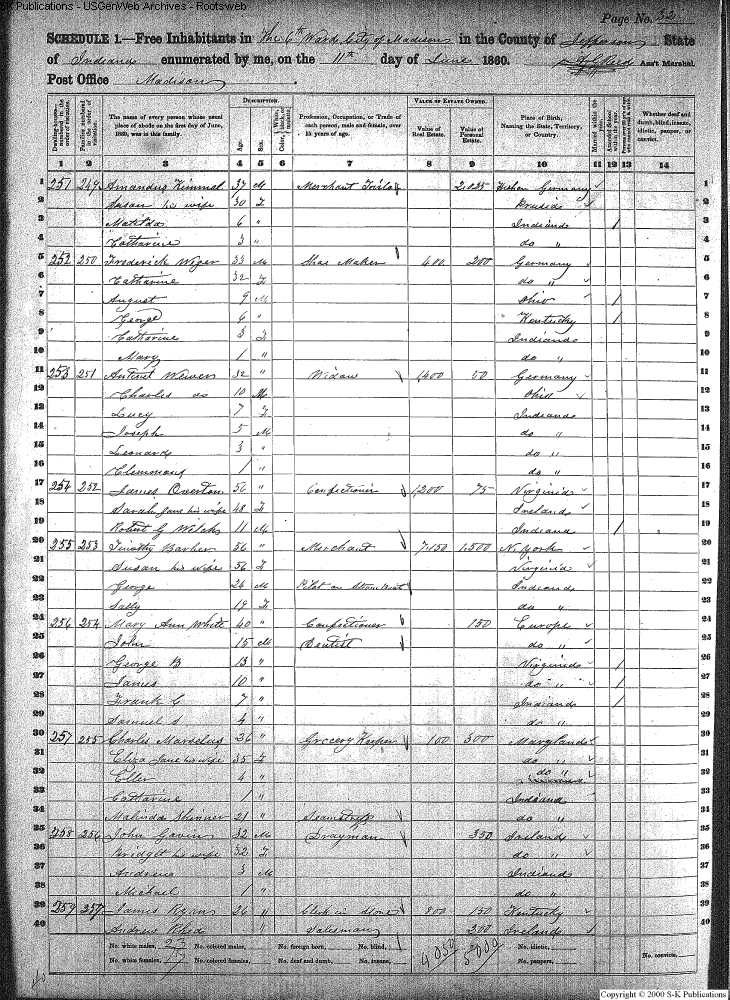 S-K Publications - USGenWeb Archives - Rootsweb
Page No. 32
SCHEDULE 1.—Free Inhabitants in The 6th Ward City of Madison in the County of Jefferson State
of Indiana enumerated by me, on the 11th day of June 1860. Ass't Marshal.
Post Office Madison
Dwelling-houses—numbered in the order of visitation.
Families numbered in the order of visitation.
The name of every person whose usual place of abode on the first day of June, 1860, was in this family.
DESCRIPTION.
Age. Sex. Color, White, black, or mulatto.
Profession, Occupation, or Trade of each person, male and female, over 15 years of age.
VALUE OF ESTATE OWNED.
Value of Real Estate. Value of Personal Estate.
Place of Birth, Naming the State, Territory, or Country.
Married within the year.
Attended School within the year.
Whether deaf and dumb, blind, insane, idiotic, pauper, or convict.
1 2 3 4 5 6 7 8 9 10 11 12 13 14
1 251 249 Amandus Kimmel 37 M Merchant Germany 1
2 Susan his wife 30 F Prussia 2
3 Matilda 6 " Indiana / 3
4 Catharine 3 " do " 4
5 252 250 Frederick Wiger 33 M Shoe Maker 400 200 Germany 5
6 Catharine 32 F do " 6
7 August 9 M Ohio / 7
8 George 6 " Kentucky / 8
9 Catharine 3 F Indiana 9
10 Mary 1 " do " 10
11 253 251 32 " Widow 1,400 50 Germany 11
12 Charles do 10 M Ohio 12
13 Lucy 7 F Indiana 13
14 Joseph 5 M do " 14
15 Leonard 3 " do " 15
16 Clemmons 1 " do " 16
17 254 252 James Overton 56 " Confectioner 1,200 75 Virginia 17
18 Sarah Jane his wife 48 F Ireland 18
19 Robert G Welch 11 M Indiana / 19
20 255 253 Timothy Barber 56 " Merchant 7,150 1,500 N. York 20
21 Susan his wife 56 F Virginia 21
22 George 26 M Pilot on Steam boat Indiana 22
23 Sally 19 F do " 23
24 256 254 Mary Ann White 40 " Confectioner 150 Europe 24
25 John 15 M Dentist do " 25
26 George B 13 " Virginia / 26
27 James 10 " do " / 27
28 Frank C 7 " Indiana / 28
29 Samuel S 4 " do " 29
30 257 255 Charles Marselus 36 " Grocery Keeper 100 300 Maryland 30
31 Eliza Jane his wife 35 F do " 31
32 Ellen 4 " do " 32
33 Catharine 1 " Indiana 33
34 Malinda Skinner 21 " Seamstress do " 34
35 258 256 John Gavin 32 M Drayman 350 Ireland 35
36 Bridget his wife 32 F do " 36
37 Andrew 3 M Indiana 37
38 Michael 1 " do " 38
39 259 257 James Ryan 26 " Clerk in Store 800 150 Kentucky 39
40 Andrew " Salesman 300 Ireland 40
No. white males, 23 No. colored males, No. foreign born, No. blind, 4050 5000 No. idiotic,
No. white females, 17 No. colored females, No. deaf and dumb, No. insane, No. paupers, No. convicts,
Copyright © 2000 S-K Publications